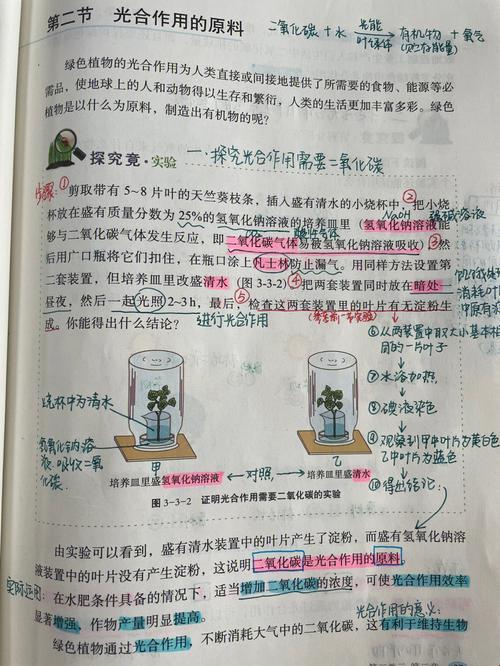 第二节 光合作用的原料
二氧化碳 + 水 光能 叶绿体 有机物 + 氧气
(贮存能量)
绿色植物的光合作用为人类直接或间接地提供了所需要的食物、能源等必
需品，使地球上的人和动物得以生存和繁衍，人类的生活更加丰富多彩。绿色
植物是以什么为原料，制造出有机物的呢？
探究竟·实验
一.探究光合作用需要二氧化碳
步骤：①
剪取带有 5~8 片叶的天竺葵枝条，插入盛有清水的小烧杯中，②把小烧
NaOH 强碱溶液
杯放在盛有质量分数为 25%的氢氧化钠溶液的培养皿里（氢氧化钠溶液能
够与二氧化碳气体发生反应，即二氧化碳气体易被氢氧化钠溶液吸收）③然
后用广口瓶将它们扣住，在瓶口涂上凡士林防止漏气。用同样方法设置第
二套装置，但培养皿里改盛清水（图 3-3-2）④把两套装置同时放在暗处一
昼夜，然后一起光照 2~3 h，最后⑤检查这两套装置里的叶片有无淀粉生
成。你能得出什么结论？
进行光合作用
⑥从两装置中取大小基本相
同的一片叶子
⑦水浴加热
⑧碘液染色
⑨观察到甲中叶片为黄白色
乙中叶片为蓝色
⑩得出结论：
烧杯中为清水
氢氧化钠溶
液：吸收二氧
化碳.
甲
乙
培养皿里盛氢氧化钠溶液
对照
培养皿里盛清水
图 3-3-2 证明光合作用需要二氧化碳的实验
由实验可以看到，盛有清水装置中的叶片产生了淀粉，而盛有氢氧化钠溶
液装置中的叶片没有产生淀粉，这说明二氧化碳是光合作用的原料。
实际运用：
在水肥条件具备的情况下，适当增加二氧化碳的浓度，可使光合作用效率
显著增强，作物产量明显提高。
光合作用的意义：
绿色植物通过光合作用，不断消耗大气中的二氧化碳，这有利于维持生物